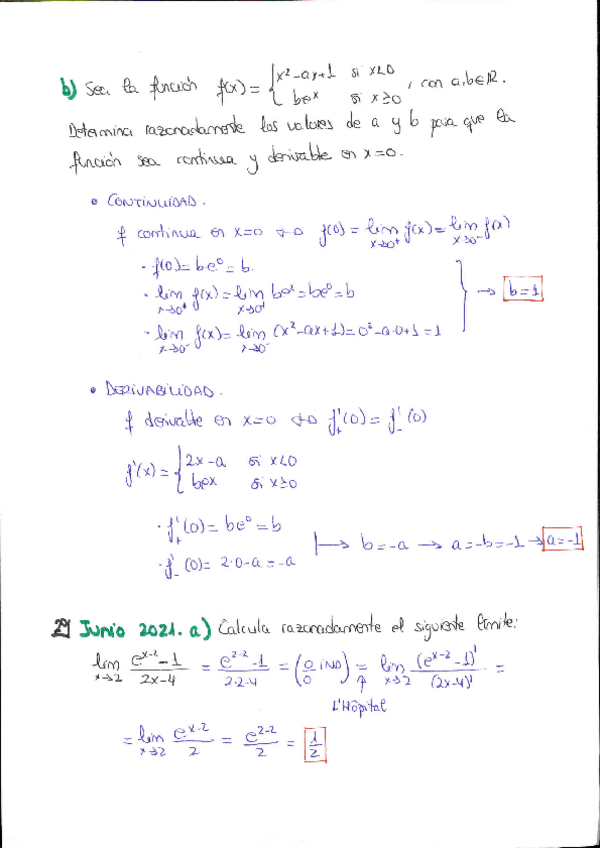 b) Sea la función f(x) = { x² - ax + 1 si x<0 ; be^x si x≥0 , con a, b ∈ ℝ.
Determina razonadamente los valores de a y b para que la
función sea continua y derivable en x=0.
• CONTINUIDAD.
f continua en x=0 ⇔ f(0) = lim x→0⁺ f(x) = lim x→0⁻ f(x)
· f(0) = be⁰ = b.
· lim x→0⁺ f(x) = lim x→0⁺ be^x = be⁰ = b
→ b = 1
· lim x→0⁻ f(x) = lim x→0⁻ (x² - ax + 1) = 0² - a·0 + 1 = 1
• DERIVABILIDAD.
f derivable en x=0 ⇔ f'₊(0) = f'₋(0)
f'(x) = { 2x - a si x<0 ; be^x si x≥0
· f'₊(0) = be⁰ = b
→ b = -a → a = -b = -1 → a = -1
· f'₋(0) = 2·0 - a = -a
2) Junio 2021. a) Calcula razonadamente el siguiente límite:
lim x→2 (e^(x-2) - 1)/(2x - 4) = (e^(2-2) - 1)/(2·2-4) = (0/0 IND) = lim x→2 (e^(x-2) - 1)'/(2x-4)' =
↑ L'Hôpital
= lim x→2 e^(x-2)/2 = e^(2-2)/2 = 1/2